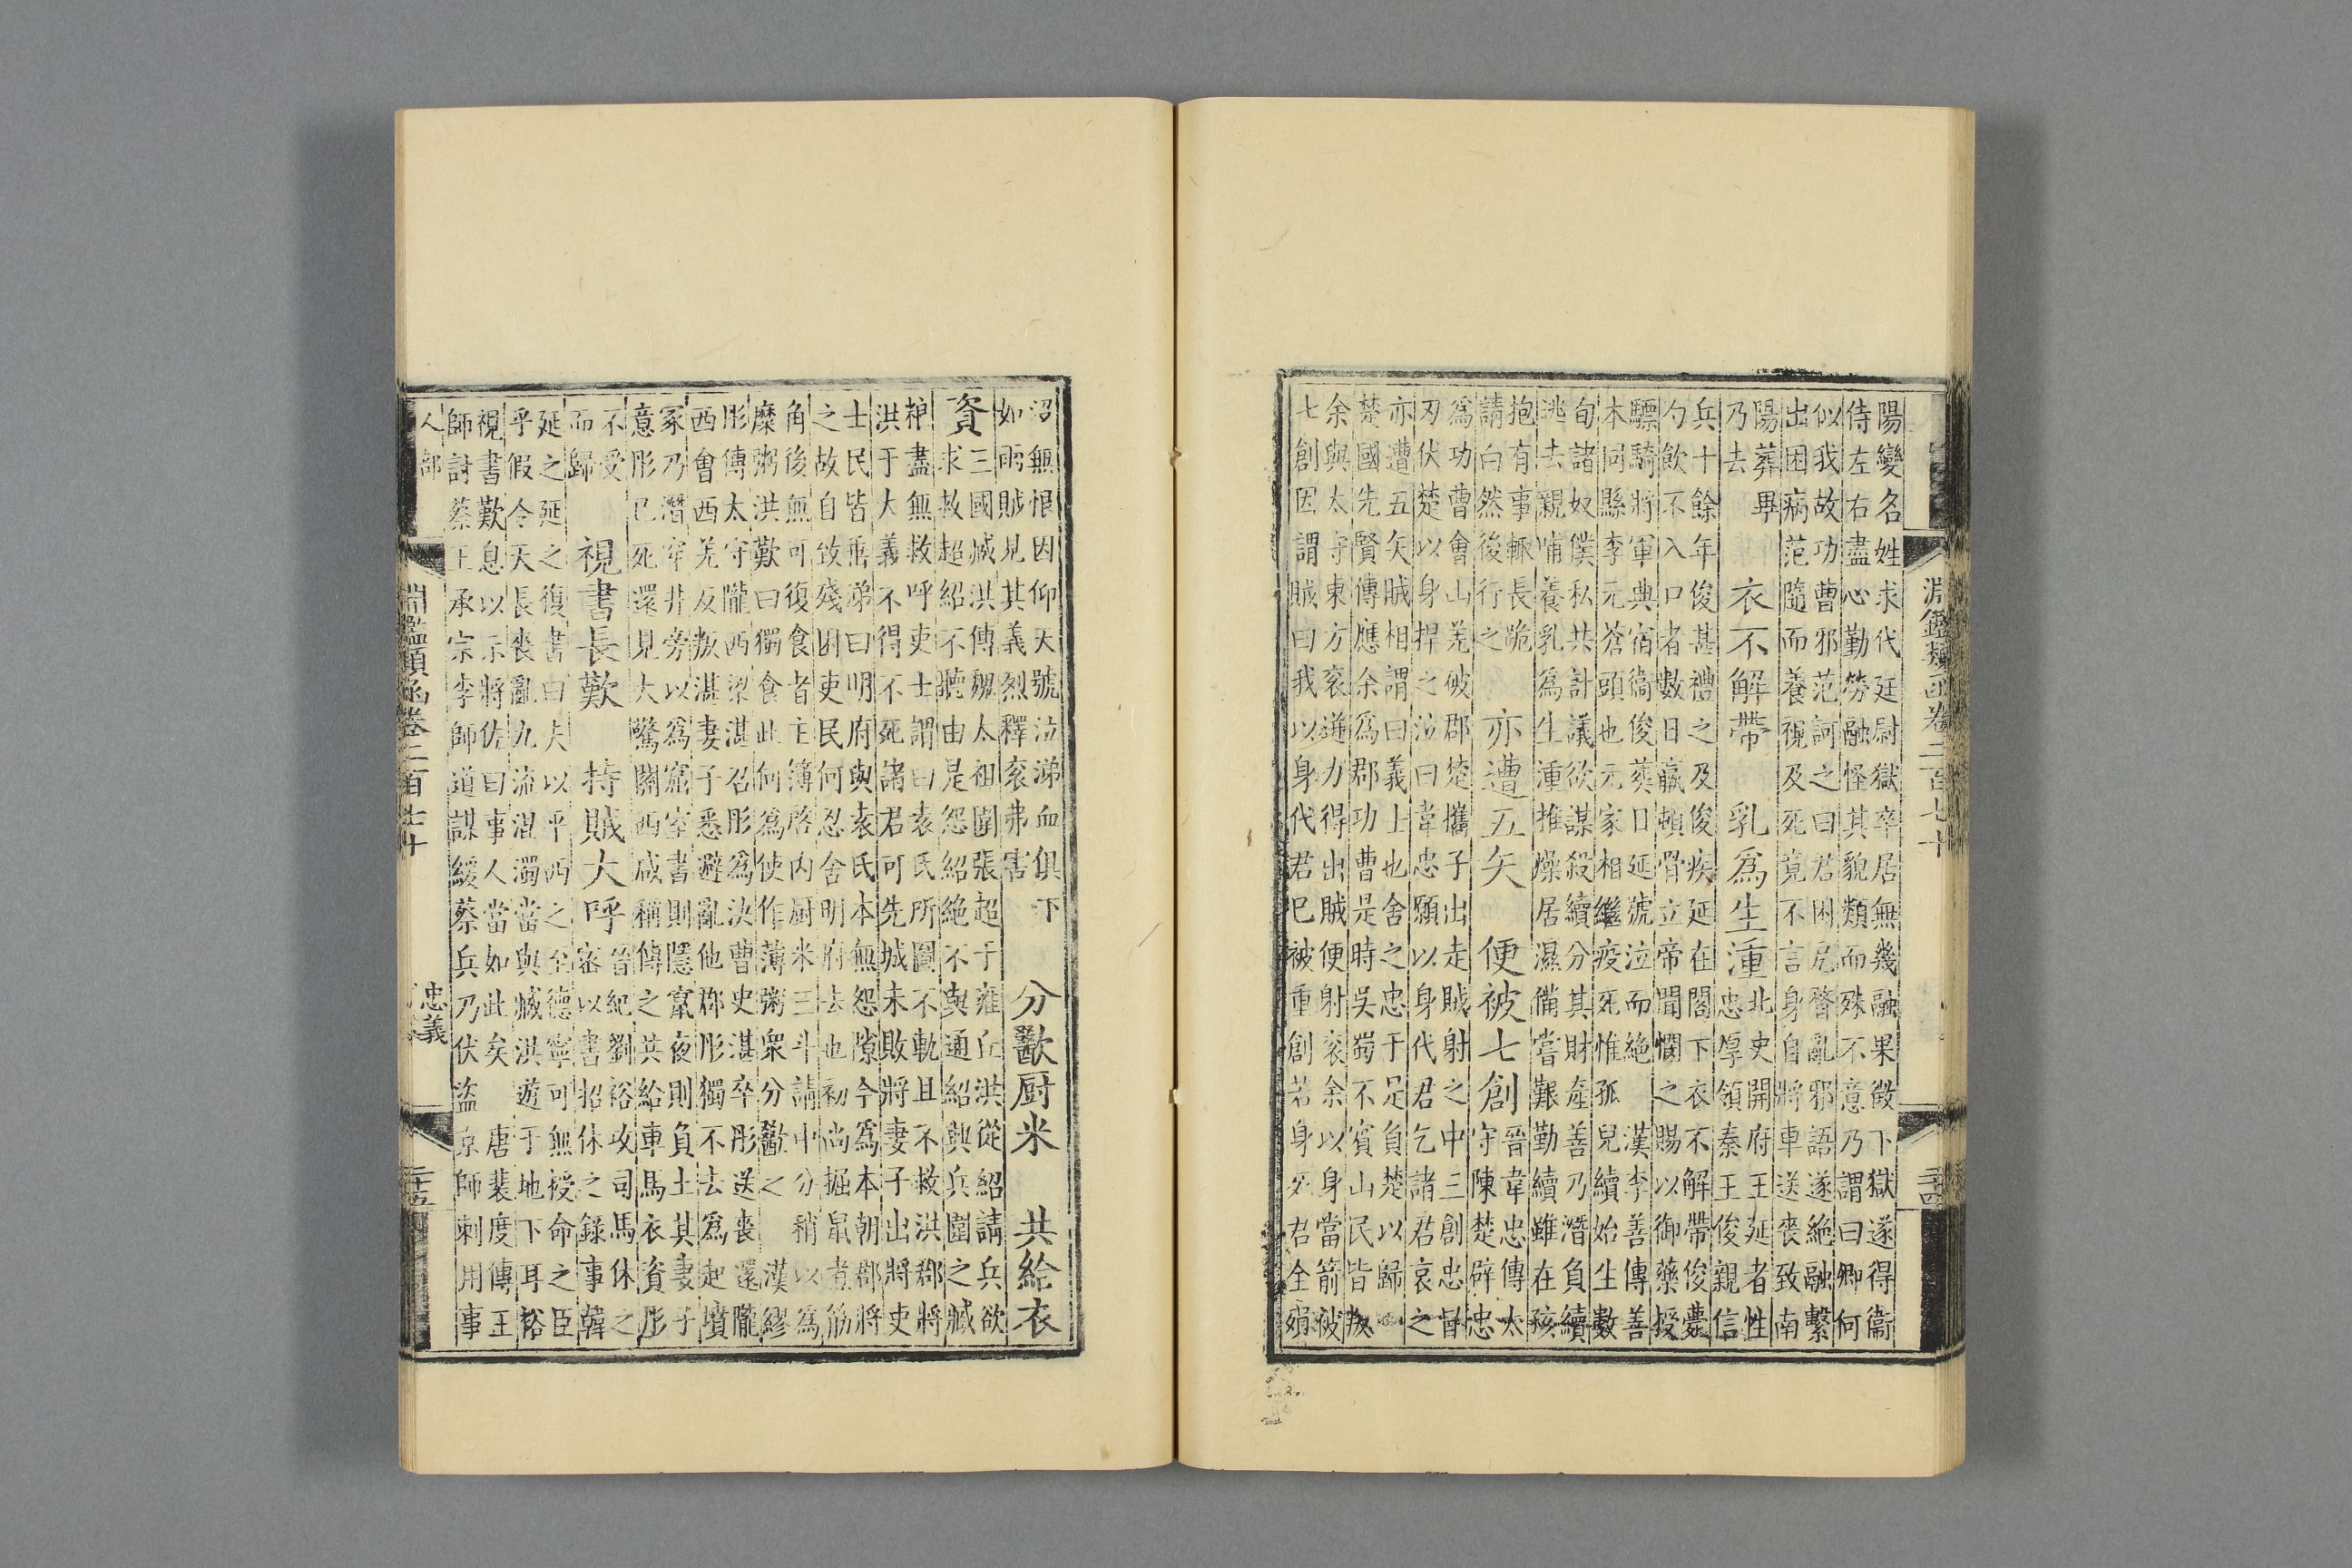 淵鑑類函卷二百七十 二十四
陽變名姓求代廷尉獄卒居無幾融果徵下獄遂得衞
侍左右盡心勤勞融怪其貌類而殊不意乃謂曰卿何
似我故功曹邪范訶之曰君困厄瞀亂邪語遂絶融繫
出困病范隨而養視及死竟不言身自將車送喪致南
陽葬畢
乃去
衣不解帶 乳爲生湩
北史開府王延者性
忠厚領秦王俊親信
兵十餘年俊甚禮之及俊疾延在閤下衣不解帶俊薨
勺飲不入口者數日羸頓骨立帝聞憫之賜以御藥授
驃騎將軍典宿衞俊葬日延號泣而絶 漢李善傳善
本同縣李元蒼頭也元家相繼疫死惟孤兒續始生數
旬諸奴僕私共計議欲謀殺續分其財產善乃潛負續
逃去親哺養乳爲生湩推燥居濕備嘗艱勤續雖在孩
抱有事輒長跪
請白然後行之
亦遭五矢 便被七創
晉韋忠傳太
守陳楚辟忠
爲功曹會山羌破郡楚攜子出走賊射之中三創忠冒
刃伏楚以身捍之泣曰韋忠願以身代君乞諸君哀之
亦遭五矢賊相謂曰義士也舍之忠于是負楚以歸
楚國先賢傳應余爲郡功曹是時吳蜀不賓山民皆叛
余與太守東方衮迸力得出賊便射衮余以身當箭被
七創因謂賊曰我以身代君已被重創若身死君全殞
沒無恨因仰天號泣涕血俱下
如雨賊見其義烈釋衮弗害
分歠厨米 共給衣
資
三國臧洪傳魏太祖圍張超于雍丘洪從紹請兵欲
求救超紹不聽由是怨紹絶不與通紹興兵圍之臧
盡無救呼吏士謂曰袁氏所圖不軌且不救洪郡將
洪于大義不得不死諸君可先城未敗將妻子出將吏
士民皆垂涕曰明府與袁氏本無怨隙今爲本朝郡將
之故自致殘困吏民何忍舍明府去也初尚掘鼠煮筋
角後無可復食者主簿啓内厨米三斗請中分稍以爲
糜粥洪歎曰獨食此何爲使作薄粥衆分歠之 漢繆
彤傳太守隴西梁湛召彤爲決曹史湛卒彤送喪還隴
西會西羌反叛湛妻子悉避亂他郡彤獨不去爲起墳
冢乃潛穿井旁以爲窟室晝則隱竄夜則負土其妻子
意彤已死還見大驚關西咸稱傳之共給車馬衣資彤
不受
而歸
視書長歎 持賊大呼
晉紀劉裕攻司馬休之
密以書招休之錄事韓
延之延之復書曰夫以平西之至德寧可無授命之臣
乎假令天長喪亂九流混濁當與臧洪遊于地下耳裕
視書歎息以示將佐曰事人當如此矣 唐裴度傳王
師討蔡王承宗李師道謀緩蔡兵乃伏盜京師刺用事
人部
淵鑑類函卷二百七十 忠義 二十五